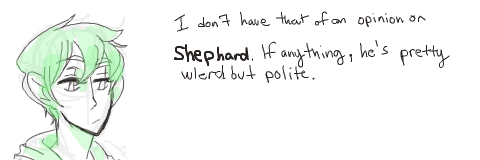 I don't have that of an opinion on
Shephard. If anything, he's pretty
wierd but polite.